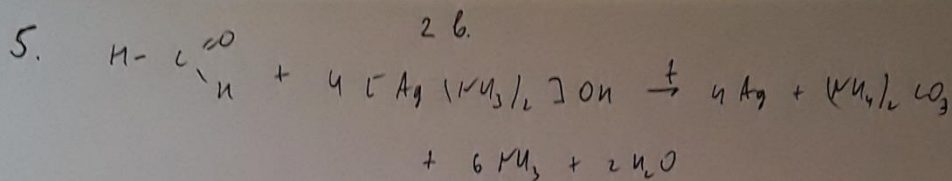 2 в.
5. H-C(=O)H + 4[Ag(NH₃)₂]OH →t 4Ag + (NH₄)₂CO₃
+ 6NH₃ + 2H₂O